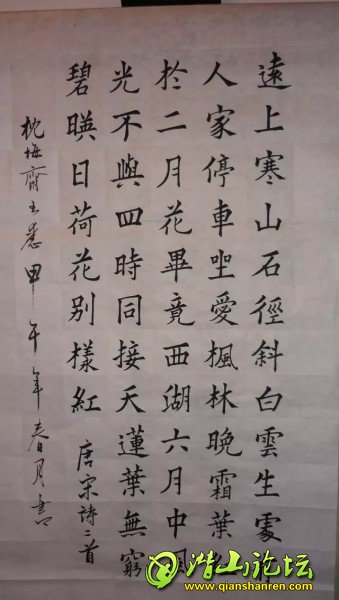 遠上寒山石徑斜白雲生處
人家停車坐愛楓林晚霜葉
於二月花畢竟西湖六月中風
光不與四時同接天蓮葉無窮
碧暎日荷花别樣紅 唐宋詩二首
枕梅齋主 甲午年春月書
潜山论坛
www.qianshanren.com